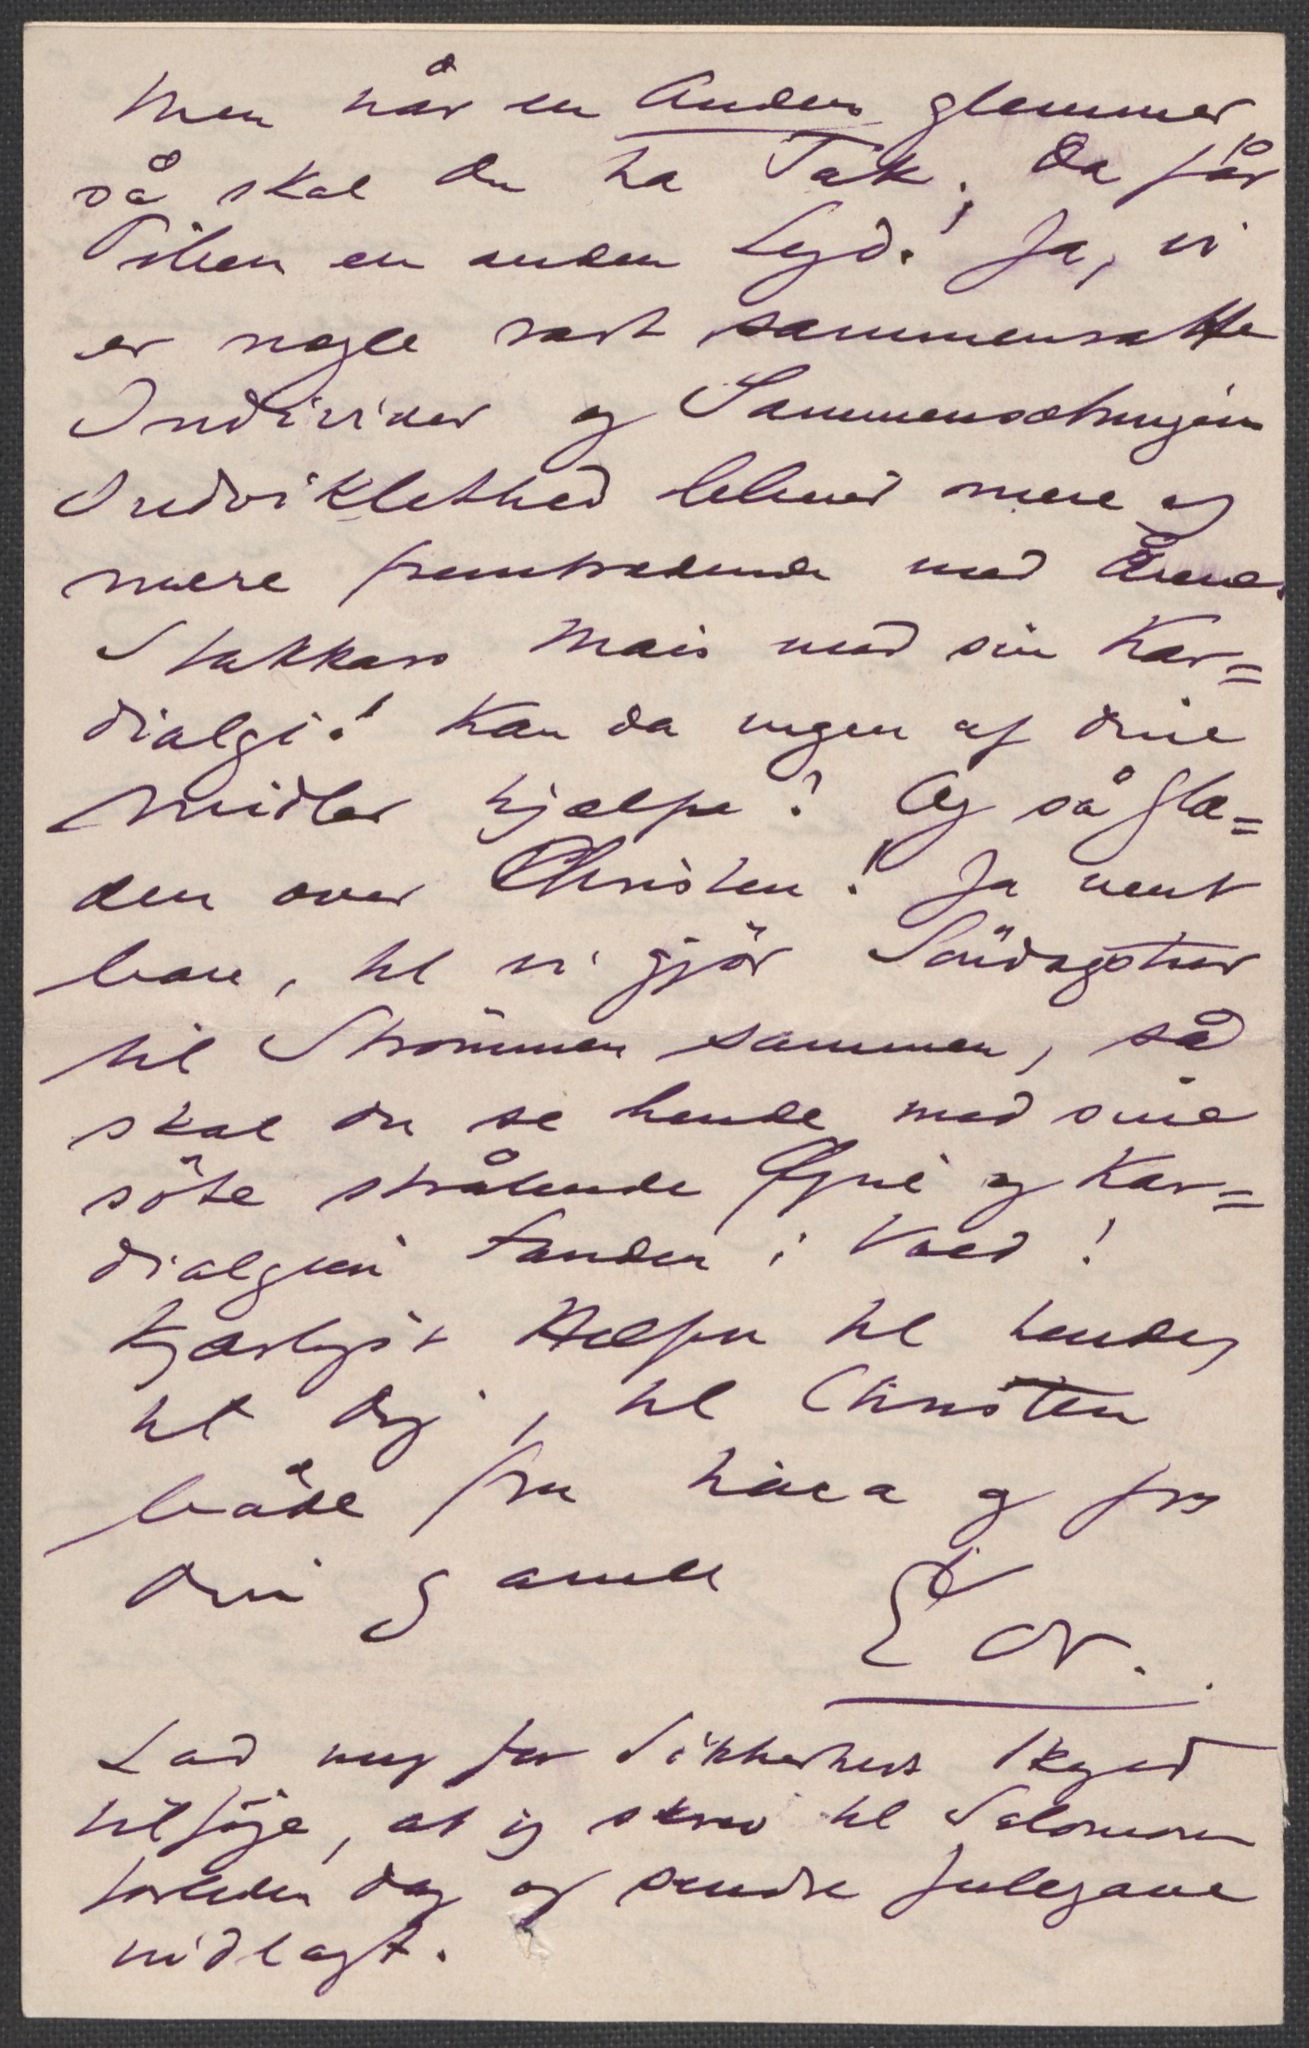 Men når en Anden glemmer
så skal du ha Tak. Da får
Piben en anden Lyd! Ja, vi
er nogle rart sammensatte
Individer og Sammensætningens
Indviklethed blir mere og
mere fremtrædende med Årene.
Stakkars Mais med sin Kar=
dialgi! Kan da ingen af dine
Midler hjælpe? Og så Glæ=
den over Christen! Ja vent
bare, til vi gjör Söndagsture
til Strömmen sammen, så
skal du se hende med sine
söte strålende Øjne og Kar=
dialgien Fanden i Vold!
Kjærligst Hilsen til hende,
til dig, til Christen
både fra Nina og fra
din gamle
Edv.
Lad mig for Sikkerheds Skyld
tilföje, at jeg skrev til Salomon
forleden Dag og sendte Julegave
vidlagt.